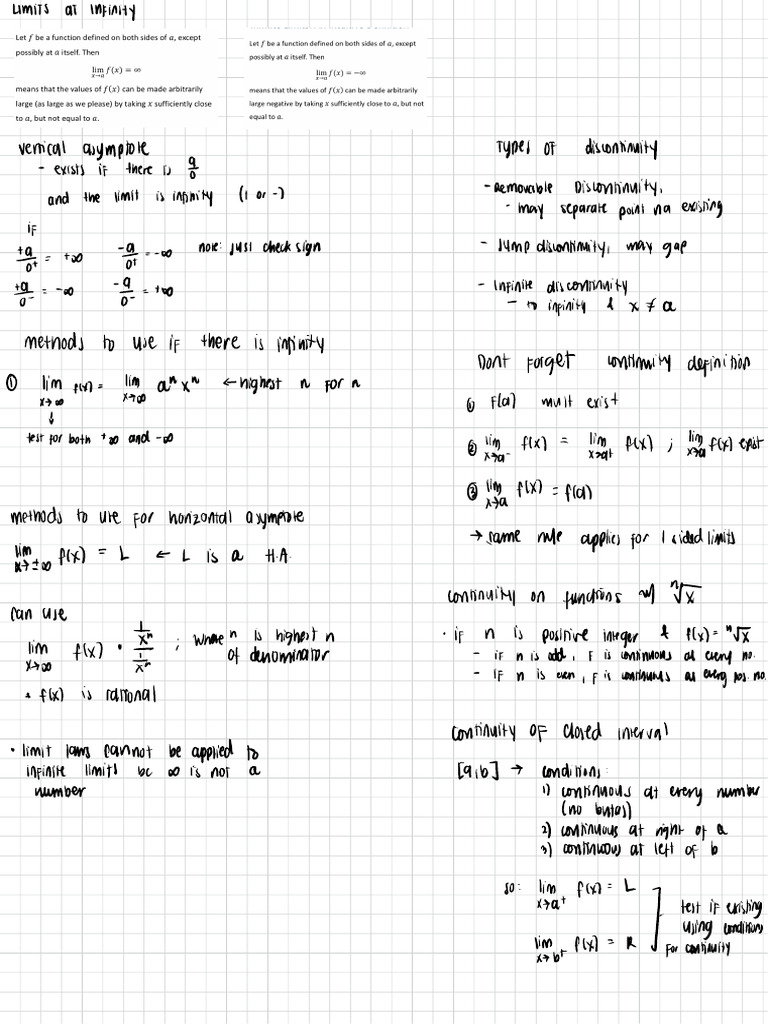 LIMITS AT INFINITY
Let f be a function defined on both sides of a, except
possibly at a itself. Then
lim x→a f(x) = ∞
means that the values of f(x) can be made arbitrarily
large (as large as we please) by taking x sufficiently close
to a, but not equal to a.
Let f be a function defined on both sides of a, except
possibly at a itself. Then
lim x→a f(x) = −∞
means that the values of f(x) can be made arbitrarily
large negative by taking x sufficiently close to a, but not
equal to a.
vertical asymptote
- exists if there is a/0
and the limit is infinity (+ or -)
if
+a/0⁺ = +∞    -a/0⁺ = -∞    note: just check sign
+a/0⁻ = -∞    -a/0⁻ = +∞
methods to use if there is infinity
① lim x→∞ f(x) = lim x→∞ aⁿxⁿ ← highest n for n
↓
test for both +∞ and -∞
methods to use for horizontal asymptote
lim x→±∞ f(x) = L ← L is a H.A.
can use
lim x→∞ f(x) · (1/xⁿ)/(1/xⁿ) ; where n is highest n
of denominator
* f(x) is rational
• limit laws cannot be applied to
infinite limits bc ∞ is not a
number
Types of discontinuity
- Removable Discontinuity,
- may separate point na existing
- Jump discontinuity, may gap
- Infinite discontinuity
- to infinity & x ≠ a
Dont forget continuity definition
① f(a) must exist
② lim x→a⁻ f(x) = lim x→a⁺ f(x) ; lim x→a f(x) exist
③ lim x→a f(x) = f(a)
→ same rule applies for 1 sided limits
continuity on functions w/ ⁿ√x
· if n is positive integer & f(x) = ⁿ√x
- if n is odd, F is continuous at every no.
- if n is even, F is continuous at every pos. no.
continuity of closed interval
[a,b] → conditions:
1) continuous at every number
(no butas)
2) continuous at right of a
3) continuous at left of b
so: lim x→a⁺ f(x) = L
lim x→b⁺ f(x) = R
test if existing
using conditions
for continuity